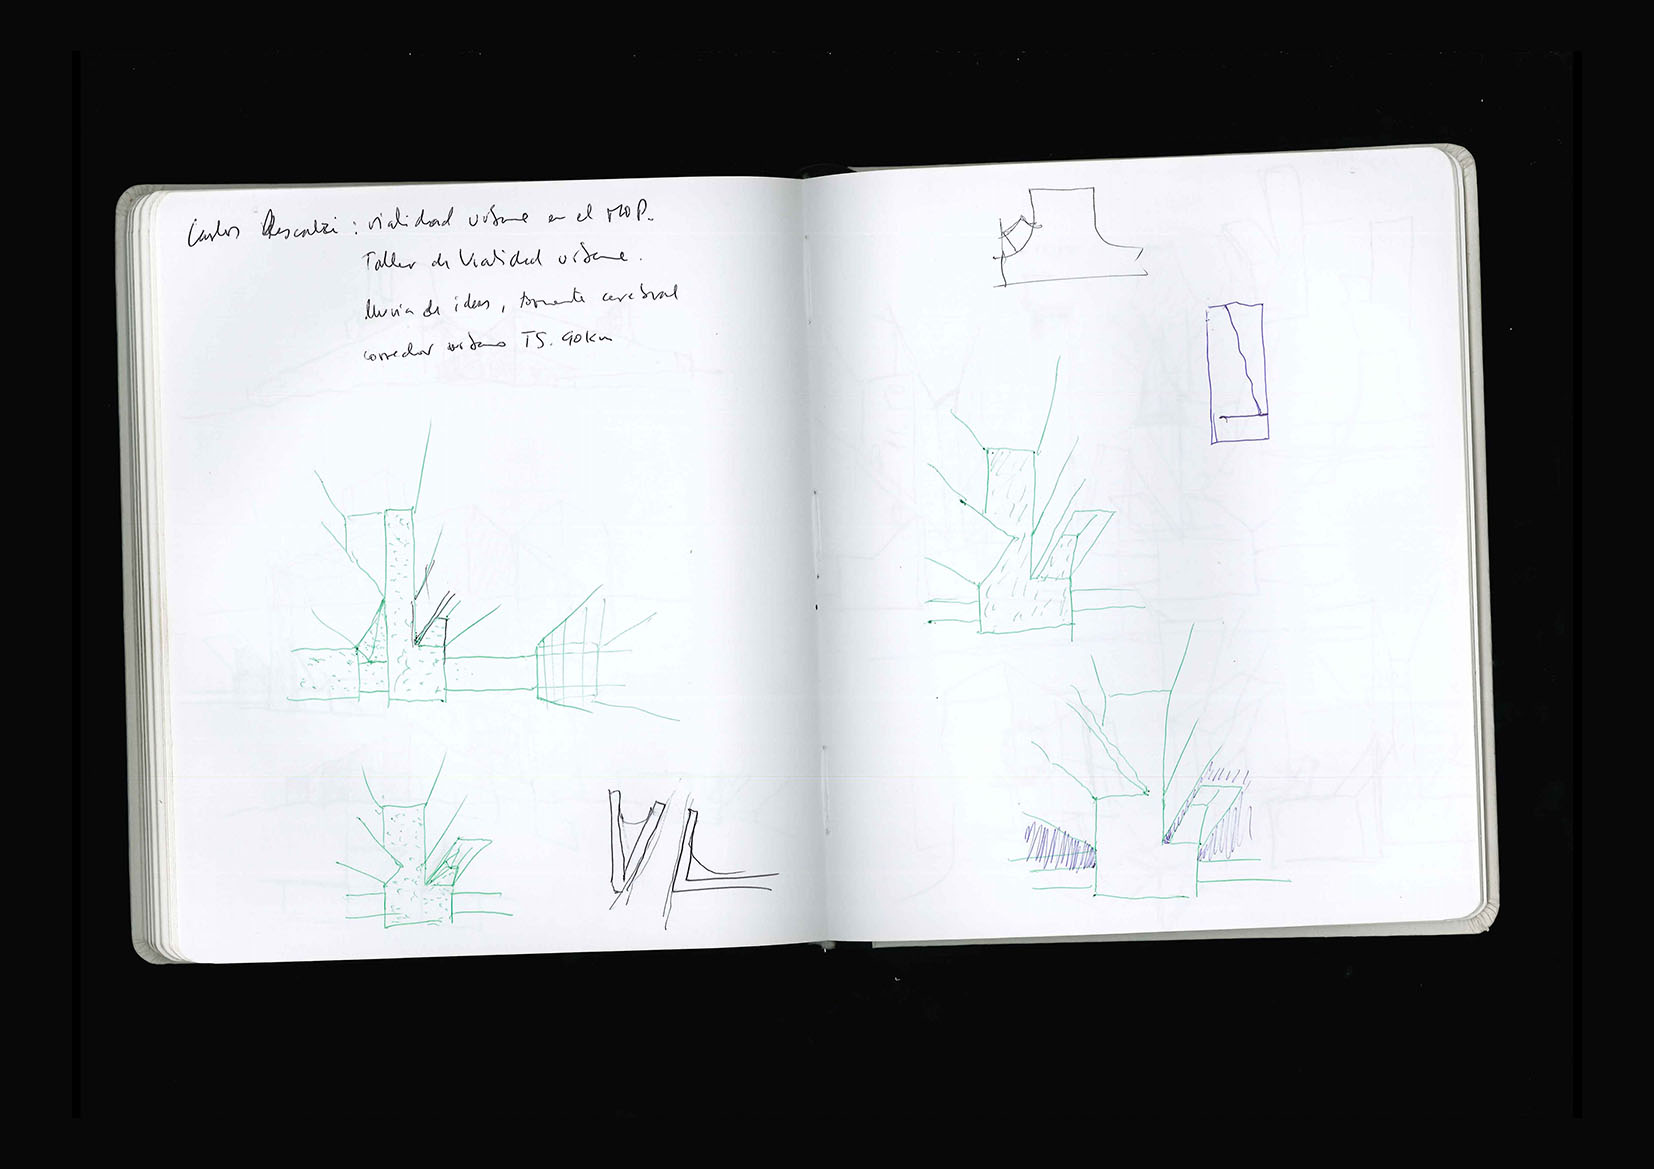 Carlos Descalzi: vialidad urbana en el MOP.
Taller de Vialidad urbana.
lluvia de ideas, tormenta cerebral
corredor urbano TS. 90km